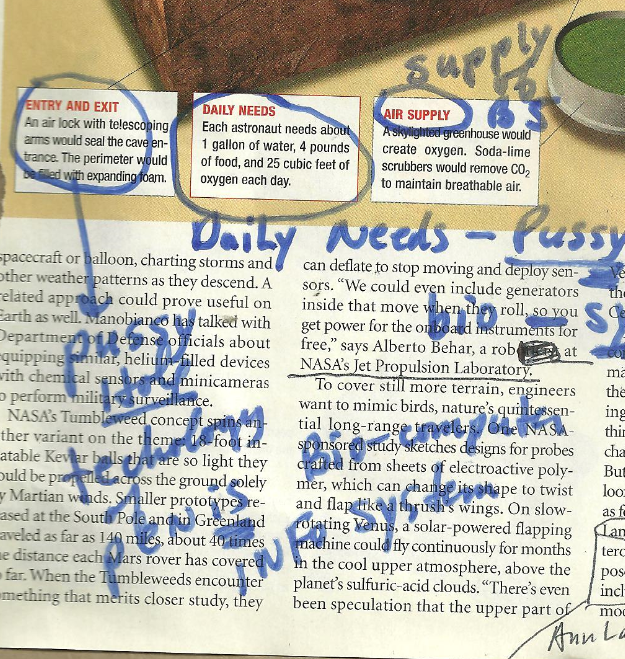 supply
to
BS
ENTRY AND EXIT
An air lock with telescoping
arms would seal the cave en-
trance. The perimeter would
be filled with expanding foam.
DAILY NEEDS
Each astronaut needs about
1 gallon of water, 4 pounds
of food, and 25 cubic feet of
oxygen each day.
AIR SUPPLY
A skylighted greenhouse would
create oxygen. Soda-lime
scrubbers would remove CO2
to maintain breathable air.
Daily Needs - Pussy
spacecraft or balloon, charting storms and
other weather patterns as they descend. A
related approach could prove useful on
Earth as well. Manobianco has talked with
Department of Defense officials about
equipping similar, helium-filled devices
with chemical sensors and minicameras
to perform military surveillance.
NASA's Tumbleweed concept spins an-
ther variant on the theme: 18-foot in-
atable Kevlar balls that are so light they
ould be propelled across the ground solely
y Martian winds. Smaller prototypes re-
ased at the South Pole and in Greenland
aveled as far as 140 miles, about 40 times
e distance each Mars rover has covered
o far. When the Tumbleweeds encounter
omething that merits closer study, they
Pussy
technology
Pelvis
can deflate to stop moving and deploy sen-
sors. "We could even include generators
inside that move when they roll, so you
get power for the onboard instruments for
free," says Alberto Behar, a rob at
NASA's Jet Propulsion Laboratory.
To cover still more terrain, engineers
want to mimic birds, nature's quintessen-
tial long-range travelers. One NASA-
sponsored study sketches designs for probes
crafted from sheets of electroactive poly-
mer, which can change its shape to twist
and flap like a thrush's wings. On slow-
rotating Venus, a solar-powered flapping
machine could fly continuously for months
in the cool upper atmosphere, above the
planet's sulfuric-acid clouds. "There's even
been speculation that the upper part of
bio - sy
Bio-computer
INFO System
Ve
the
Ce
con
ma
the
ing
thin
cha
But
loo
as f
Lan
tero
pos
incl
mod
Ann La